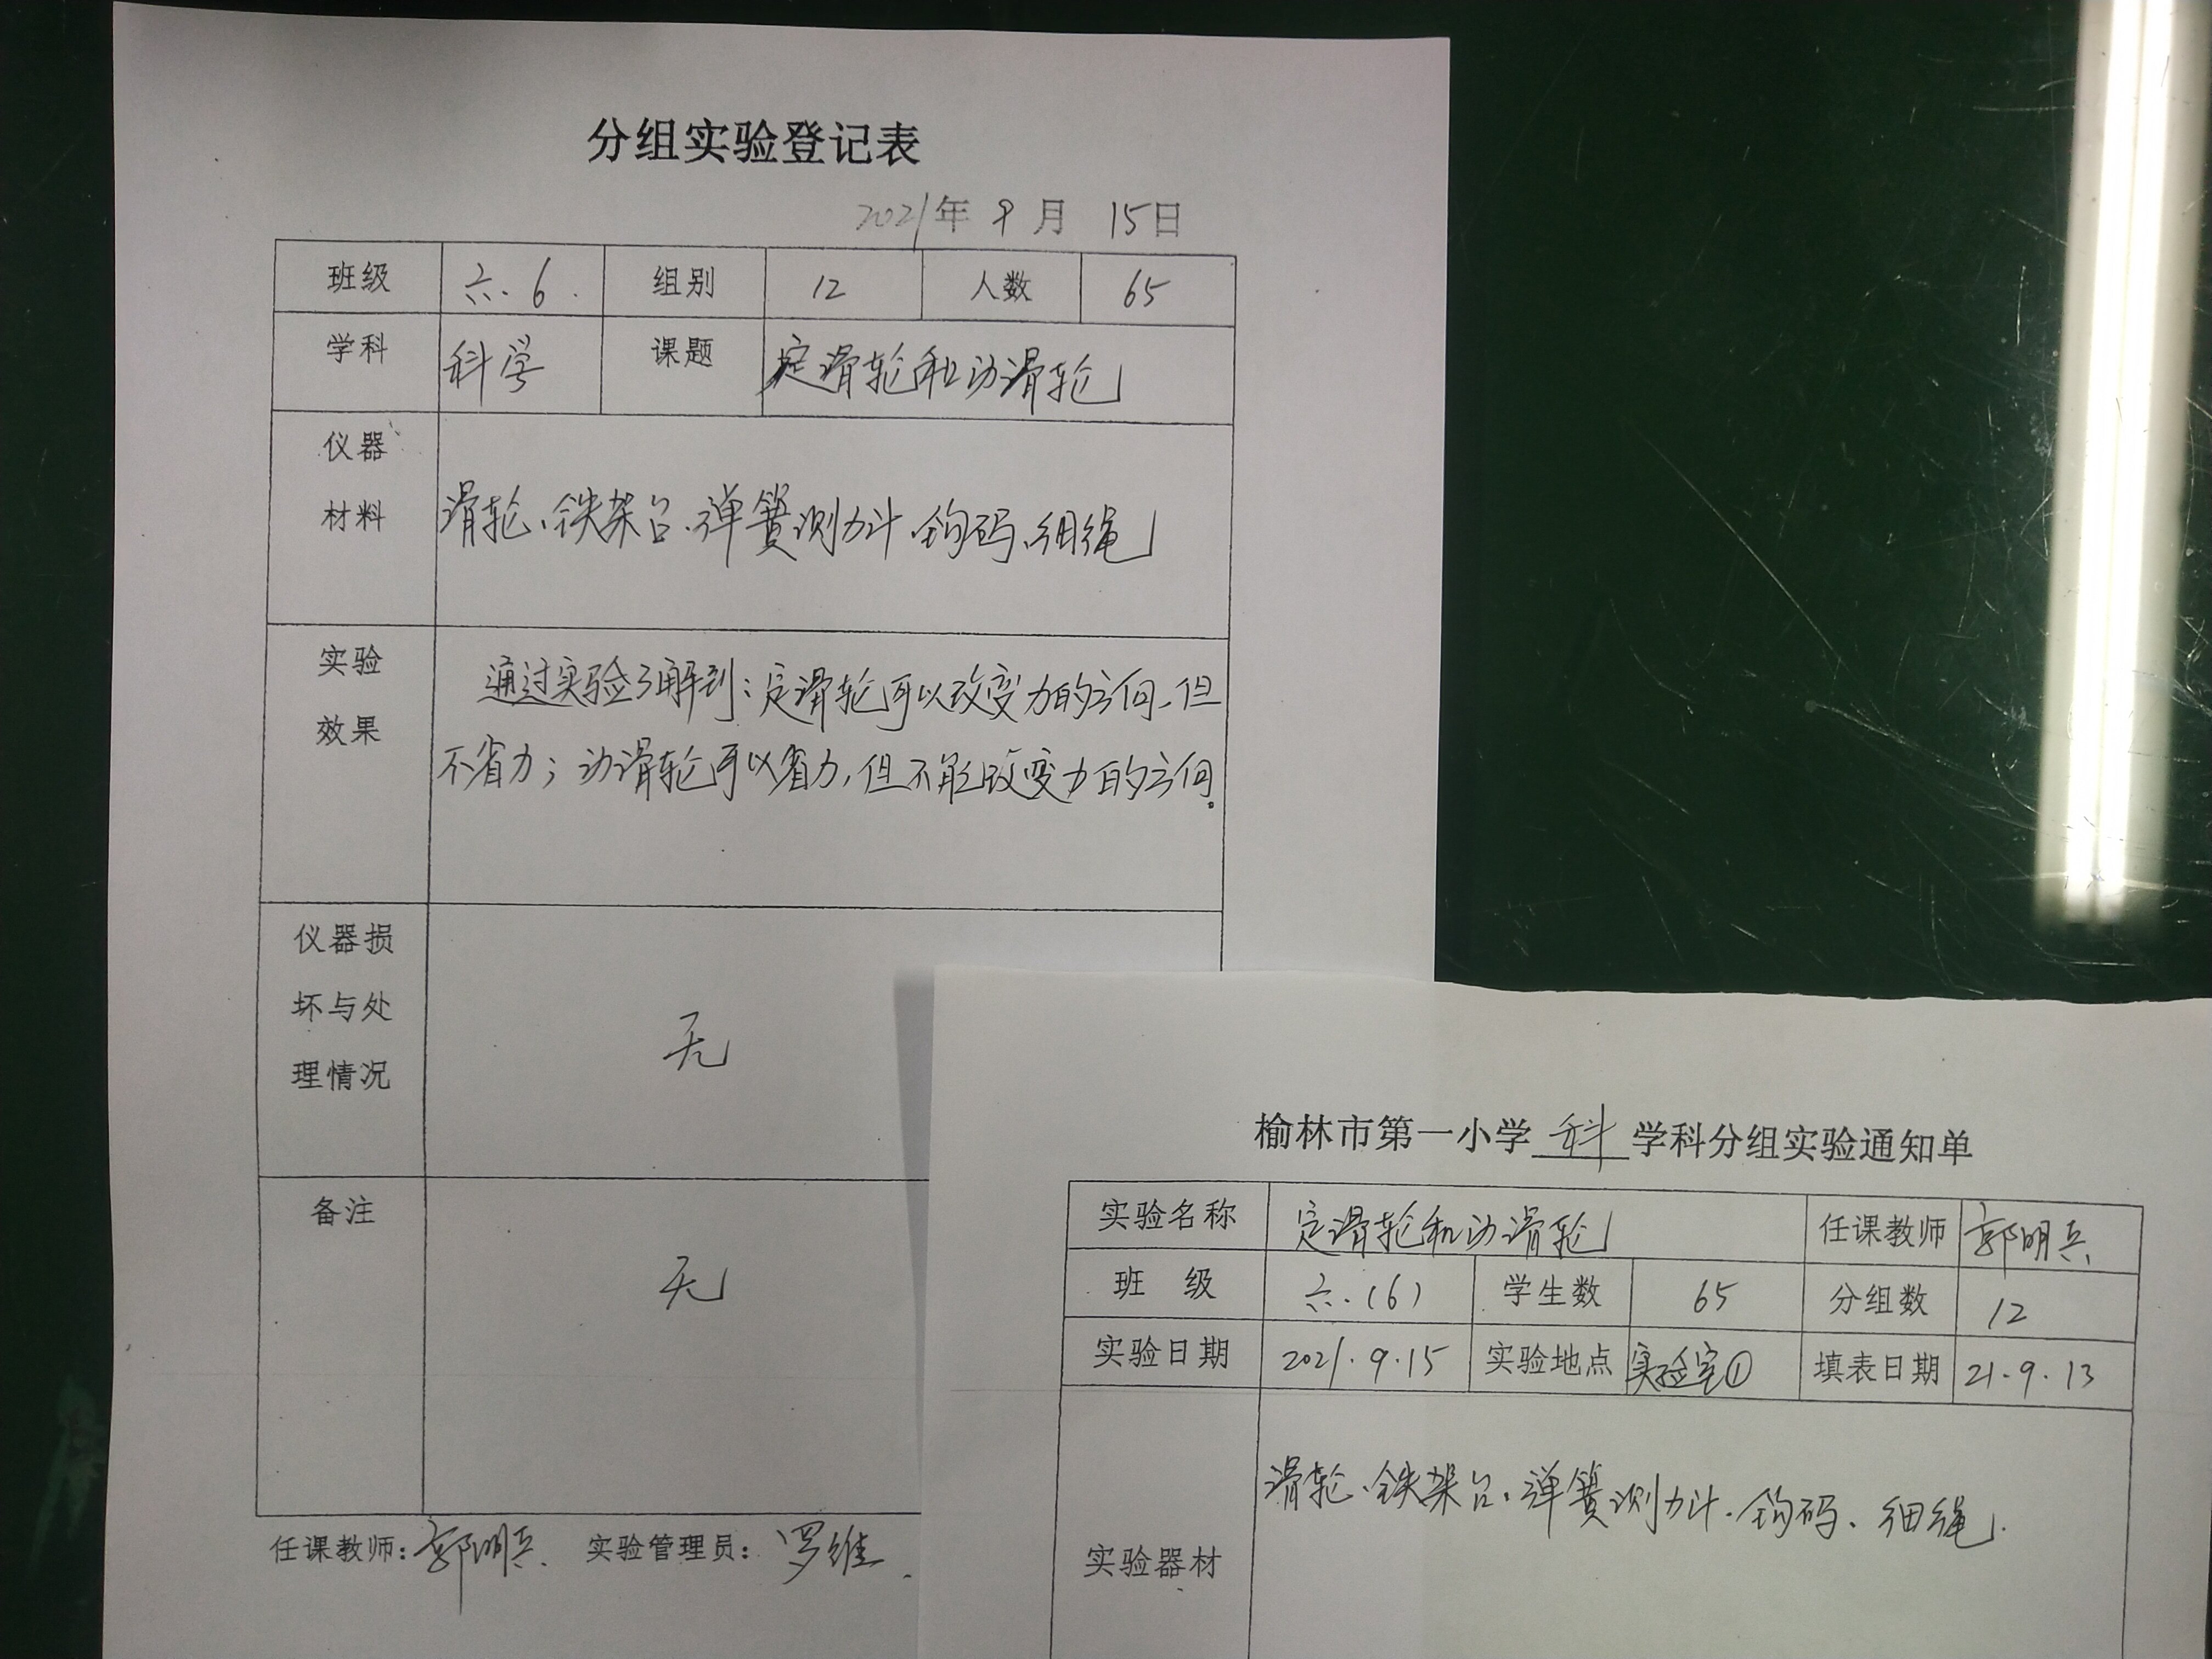 分组实验登记表
2021年 9月 15日
班级 六.6. 组别 12 人数 65
学科 科学 课题 定滑轮和动滑轮
仪器
材料
滑轮、铁架台、弹簧测力计、钩码、细绳
实验
效果
通过实验了解到:定滑轮可以改变力的方向,但
不省力;动滑轮可以省力,但不能改变力的方向。
仪器损
坏与处
理情况
无
备注
无
任课教师:郭明兵. 实验管理员:罗维.
榆林市第一小学 科 学科分组实验通知单
实验名称 定滑轮和动滑轮 任课教师 郭明兵
班 级 六.(6) 学生数 65 分组数 12
实验日期 2021.9.15 实验地点 实验室① 填表日期 21.9.13
实验器材
滑轮、铁架台、弹簧测力计、钩码、细绳.